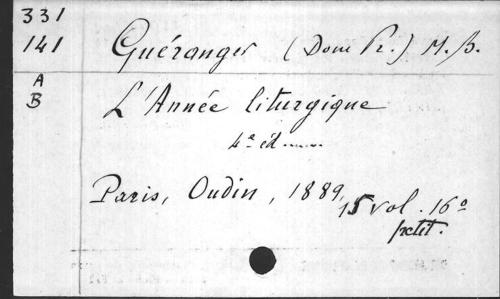 331
141 Guéranger (Dom Pr.) M. B.
A
B
L'Année liturgique
4e éd......
Paris, Oudin, 1889, 15 vol. 16º
petit.